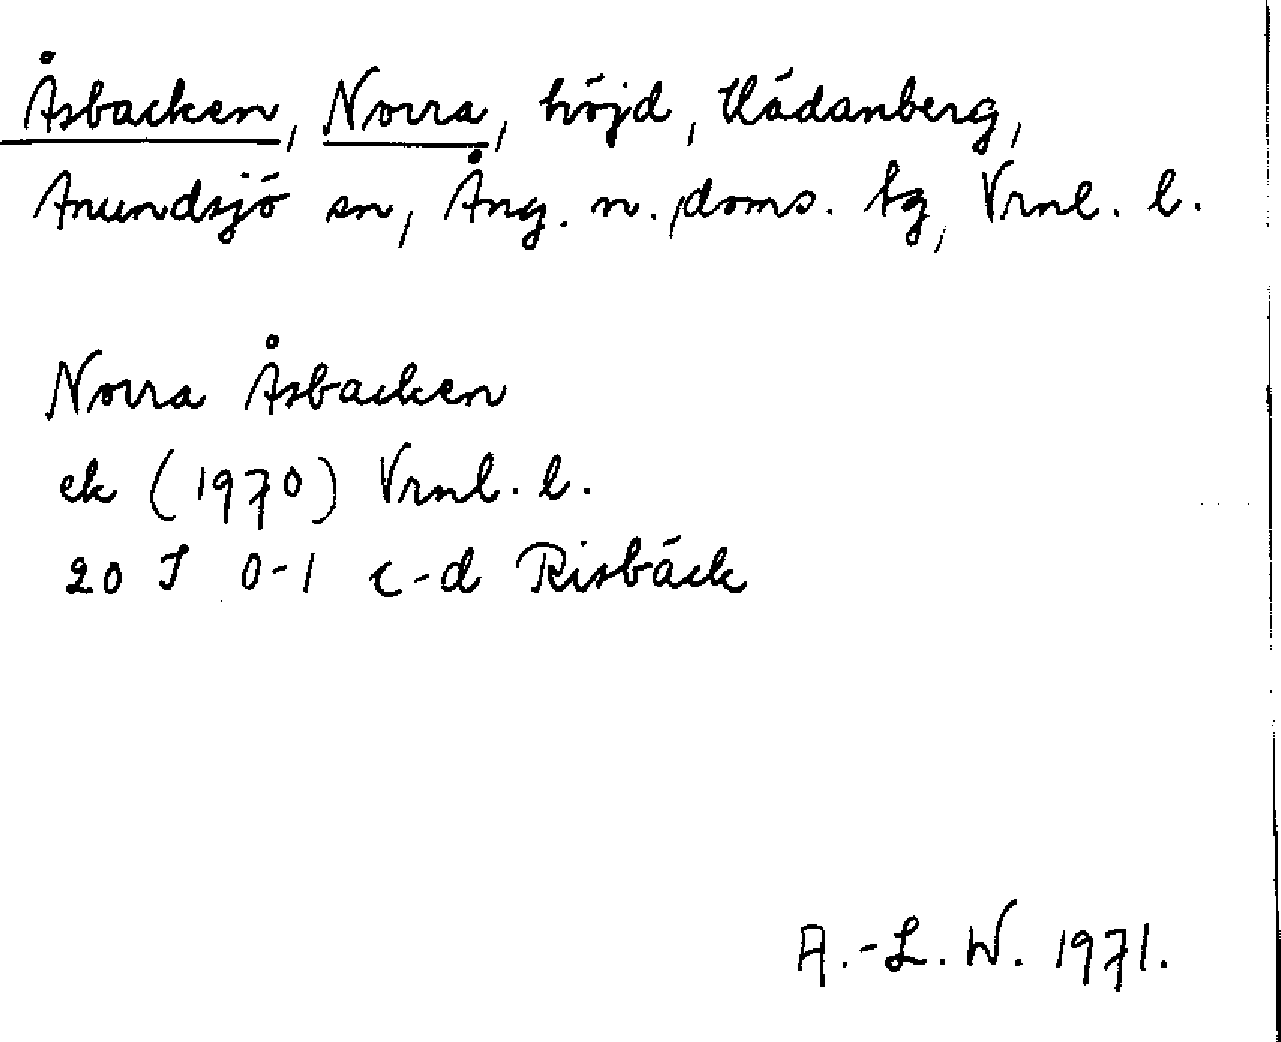 Åsbacken, Norra, höjd, Uådanberg,
Anundsjö sn, Ång. n. doms. tg, Vrnl. l.
Norra Åsbacken
ek (1970) Vrnl. l.
20 I 0-1 c-d Risbäck
A.-L. W. 1971.